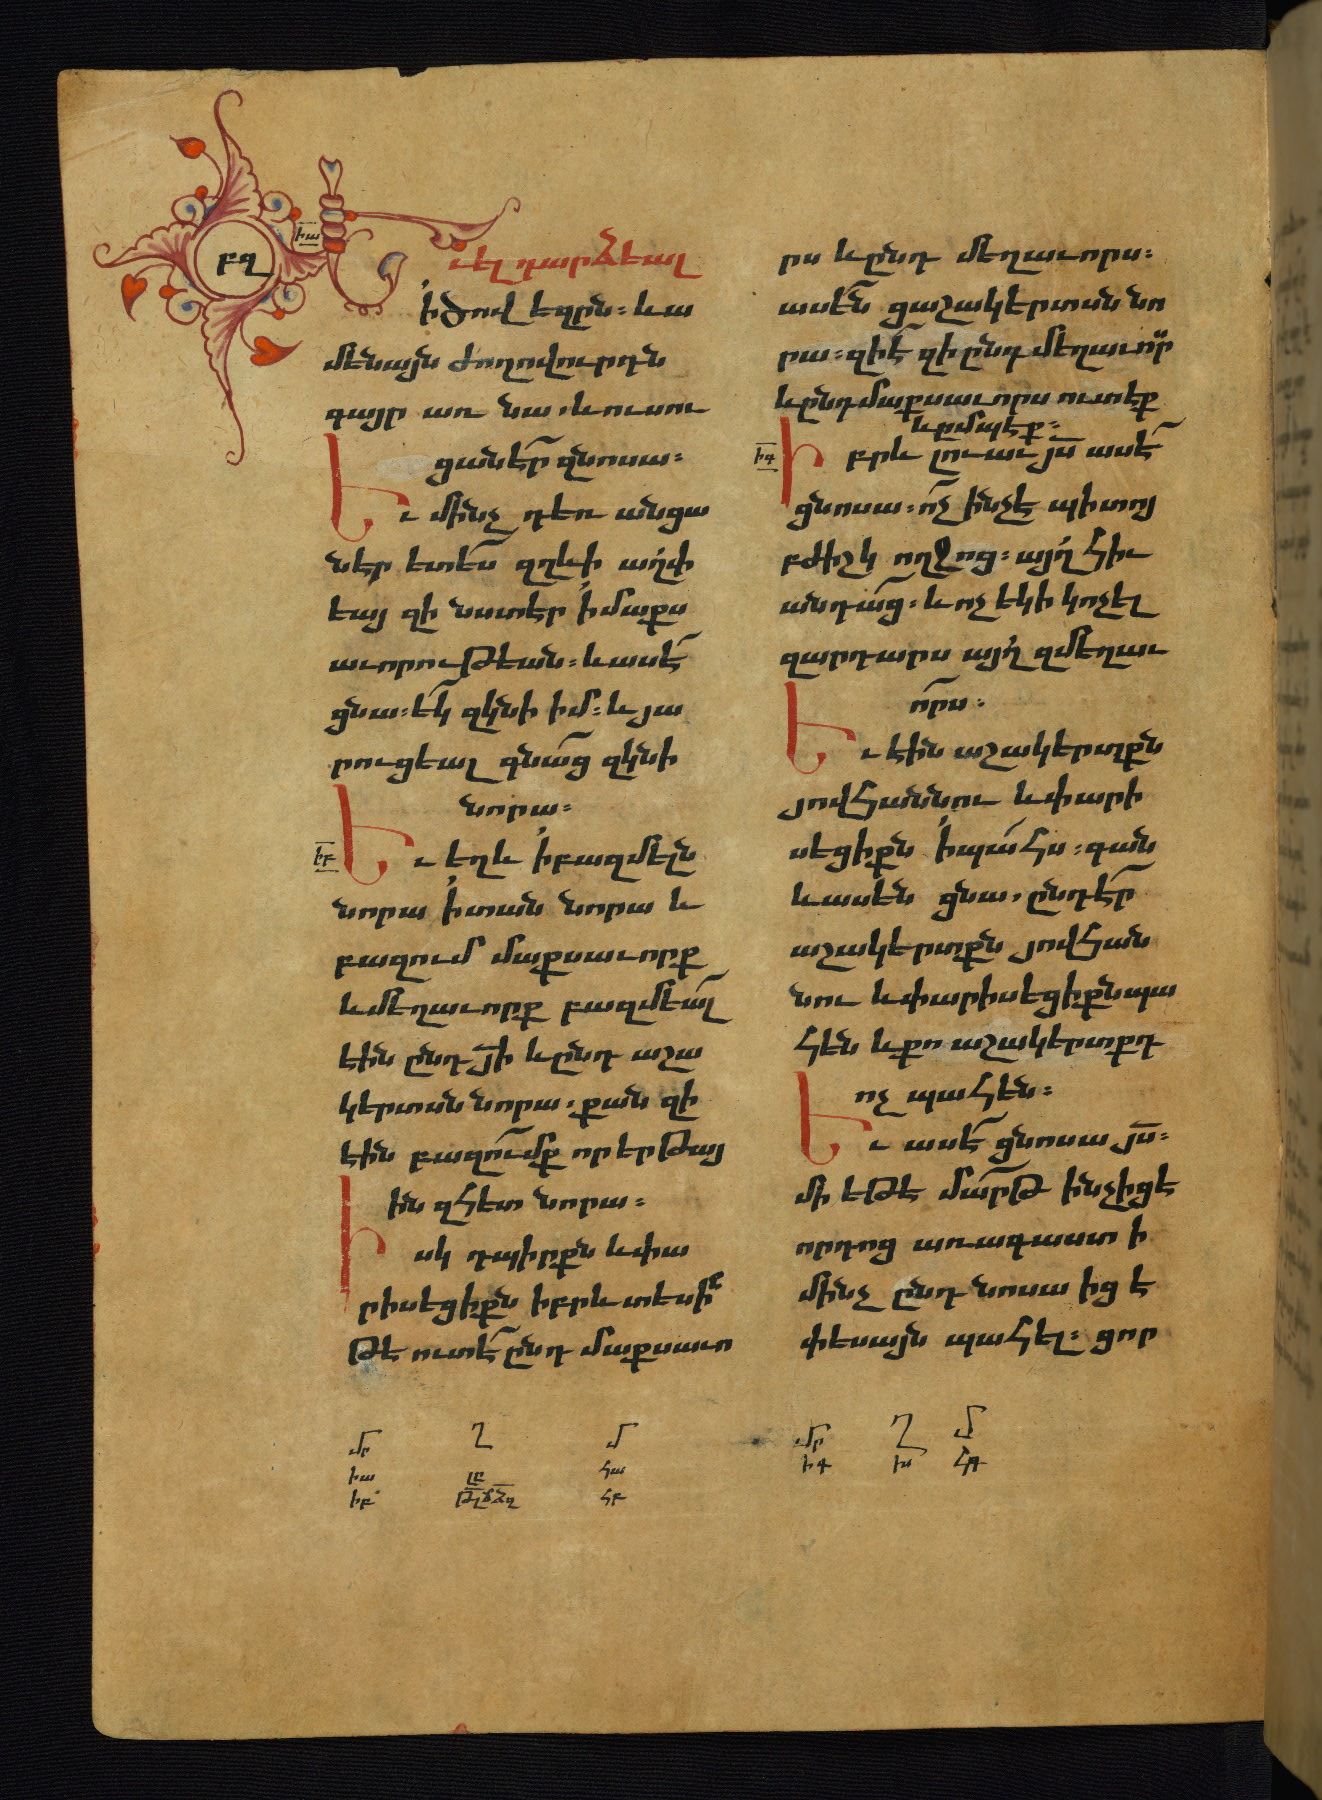 բզ
իա
Ել դարձեալ
ի ծովեզրն։ և ա
մենայն ժողովուրդն
գայր առ նա, և ուսու
ցանէր զնոսա։
Եւ մինչ դեռ անցա
նէր ետես զղևի ալփ
եայ զի նստէր ի մաքս
աւորութեան։ և ասէ
ցնա։ եկ զկնի իմ։ և յա
րուցեալ գնաց զկնի
նորա։
իբ
Եւ եղև ի բազմելն
նորա ի տան նորա և
բազում մաքսաւորք
և մեղաւորք բազմեալ
էին ընդ յի և ընդ աշա
կերտսն նորա, քան զի
էին բազումք որ երթայ
ին զհետ նորա։
Իսկ դպիրքն և փա
րիսեցիքն իբրև տեսին
թէ ուտէ ընդ մաքսաւո
րս և ընդ մեղաւորս։
ասեն ցաշակերտսն նո
րա։ զի է զի ընդ մեղաւոր
և ընդ մաքսաւորս ուտէք
և ըմպէք։
իգ
Իբրև լուաւ յս ասէ
ցնոսա։ ոչ ինչ է պիտոյ
բժիշկ ողջոց։ այղ հիւ
անդաց։ և ոչ եկի կոչել
զարդարս այղ զմեղաւ
որս։
Եւ էին աշակերտքն
յովհաննու և փարի
սեցիքն ի պահս։ գան
և ասեն ցնա, ընդէր
աշակերտքն յովհան
նու և փարիսեցիքն պա
հեն և քո աշակերտքդ
ոչ պահեն։
Եւ ասէ ցնոսա յս։
մի եթէ մարթ ինչ իցէ
որդոց առագաստի
մինչ ընդ նոսա իցէ
փեսայն պահել։ ցոր
մր Ղ մ
իա լբ հա
իբ հբ
մր Ղ մ
իգ խ հգ